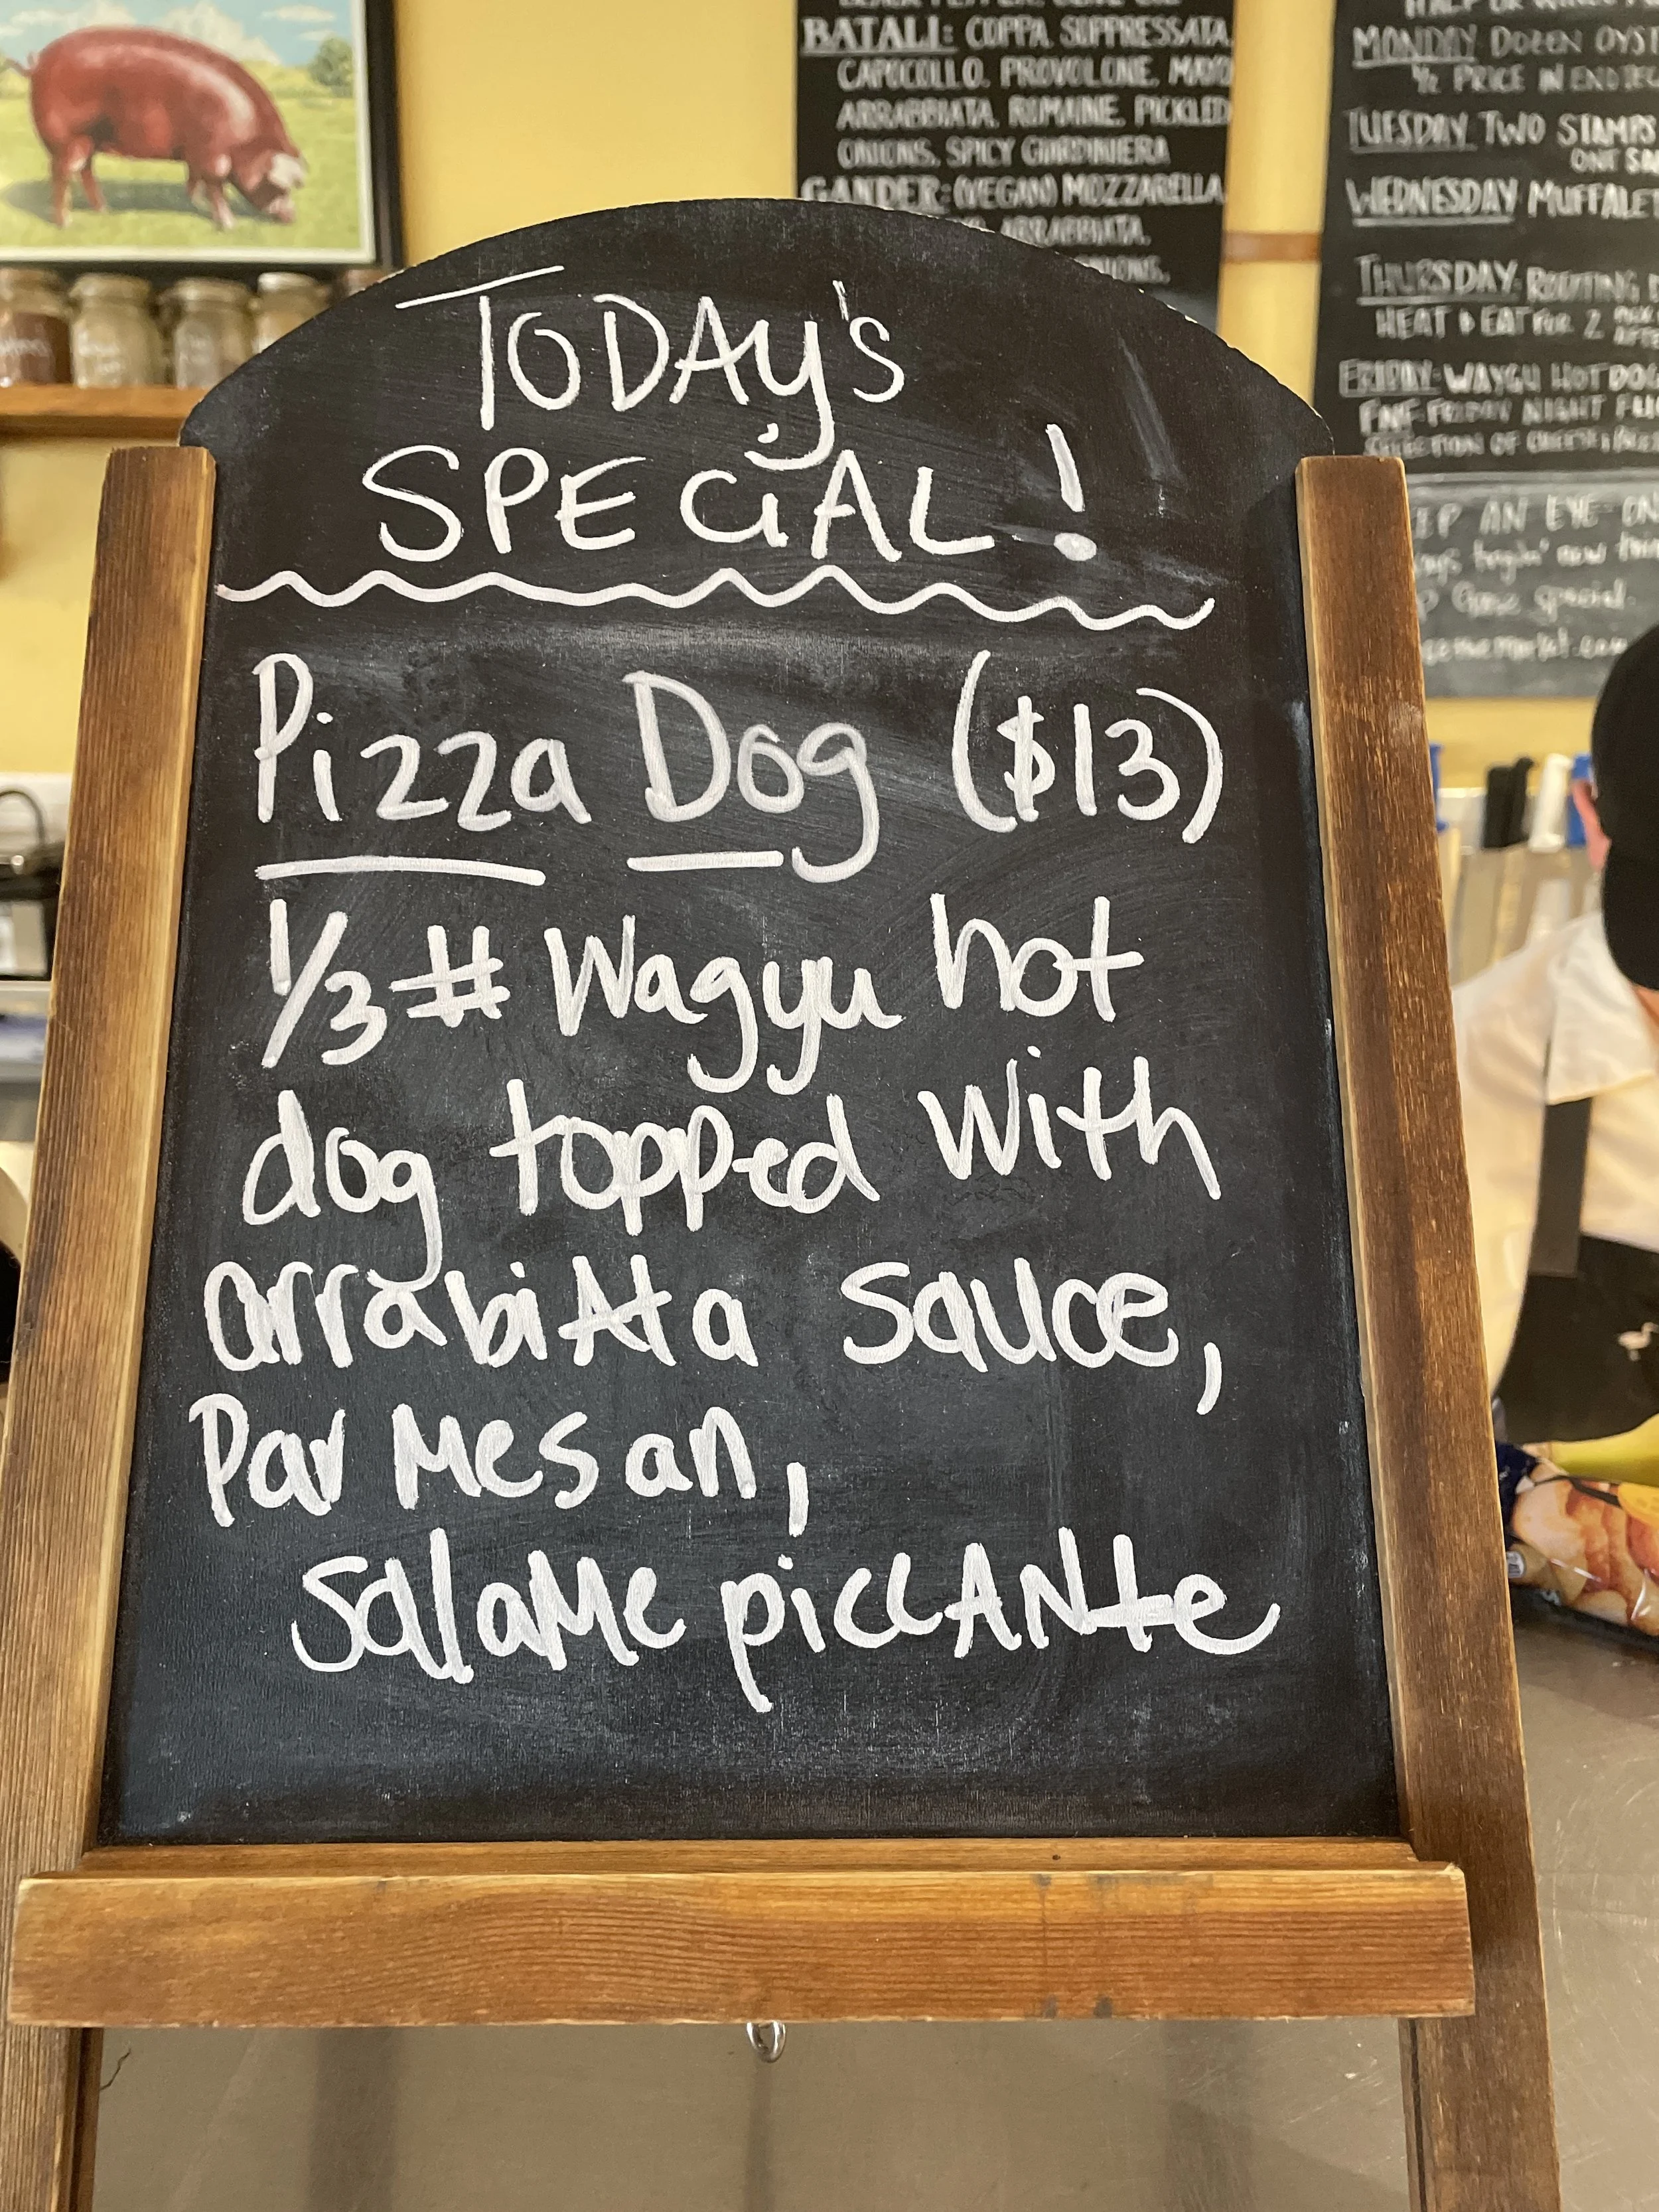 BATALI: COPPA, SOPPRESSATA,
CAPOCOLLO, PROVOLONE, MAYO
ARRABBIATA, ROMAINE, PICKLED
ONIONS, SPICY GIARDINIERA
GANDER: (VEGAN) MOZZARELLA,
ARRABBIATA,
MONDAY DOZEN OYST
1/2 PRICE
TUESDAY TWO STAMPS
WEDNESDAY MUFFALET
THURSDAY:
HEAT & EAT FOR 2
FRIDAY: WAYGU HOT DOG
FNF FRIDAY NIGHT
SELECTION OF CHEESE
AN EYE ON
new
special.
TODAY'S
SPECiAL!
Pizza Dog ($13)
1/3 # Wagyu hot
dog topped with
arrabiAtta sauce,
ParMesan,
SallaMe piccANte